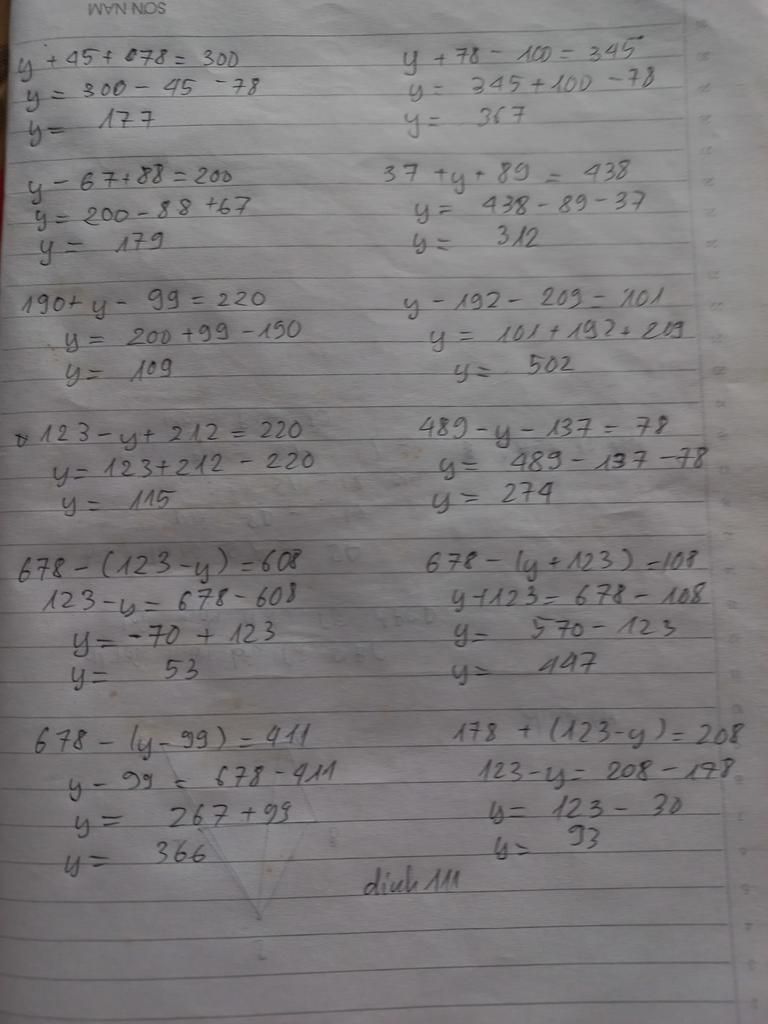 SON NAM
y + 45 + 078 = 300
y = 300 - 45 - 78
y = 177
y + 78 - 100 = 345
y = 345 + 100 - 78
y = 367
y - 67 + 88 = 200
y = 200 - 88 + 67
y = 179
37 + y + 89 = 438
y = 438 - 89 - 37
y = 312
190 + y - 99 = 220
y = 200 + 99 - 190
y = 109
y - 192 - 209 = 101
y = 101 + 192 + 209
y = 502
123 - y + 212 = 220
y = 123 + 212 - 220
y = 115
489 - y - 137 = 78
y = 489 - 137 - 78
y = 274
678 - (123 - y) = 608
123 - y = 678 - 608
y = -70 + 123
y = 53
678 - (y + 123) = 108
y + 123 = 678 - 108
y = 570 - 123
y = 447
678 - (y - 99) = 411
y - 99 = 678 - 411
y = 267 + 99
y = 366
178 + (123 - y) = 208
123 - y = 208 - 178
y = 123 - 30
y = 93